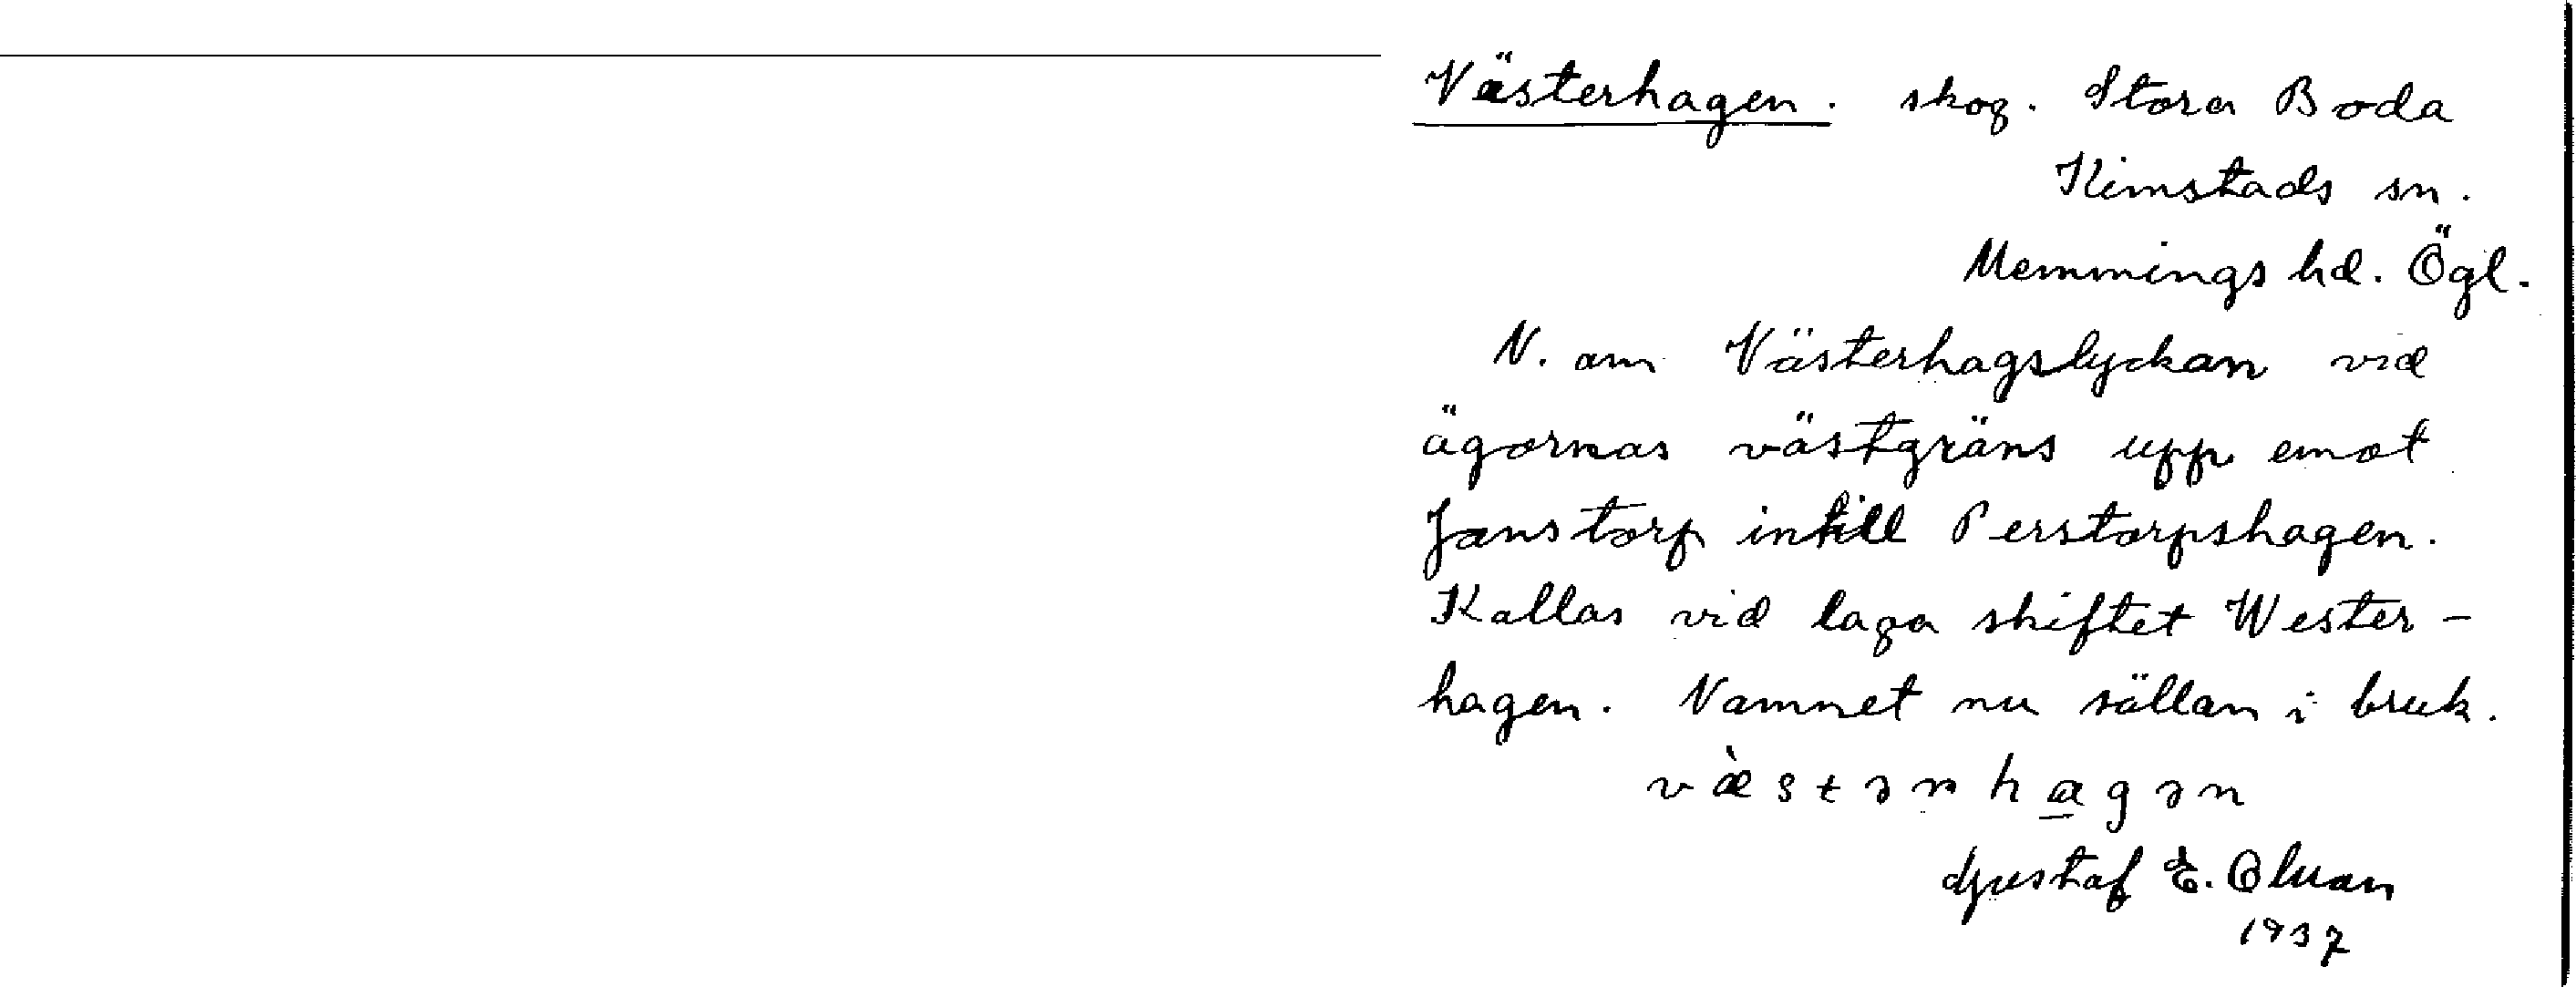 Västerhagen. skog. Stora Boda
Kimstads sn.
Memmings hd. Ögl.
N. om Västerhagslyckan vid
ägornas västgräns upp emot
Janstorp intill Perstorpshagen.
Kallas vid laga skiftet Wester-
hagen. Namnet nu sällan i bruk.
væ̀stənhagən
Gustaf E. Olman
1937